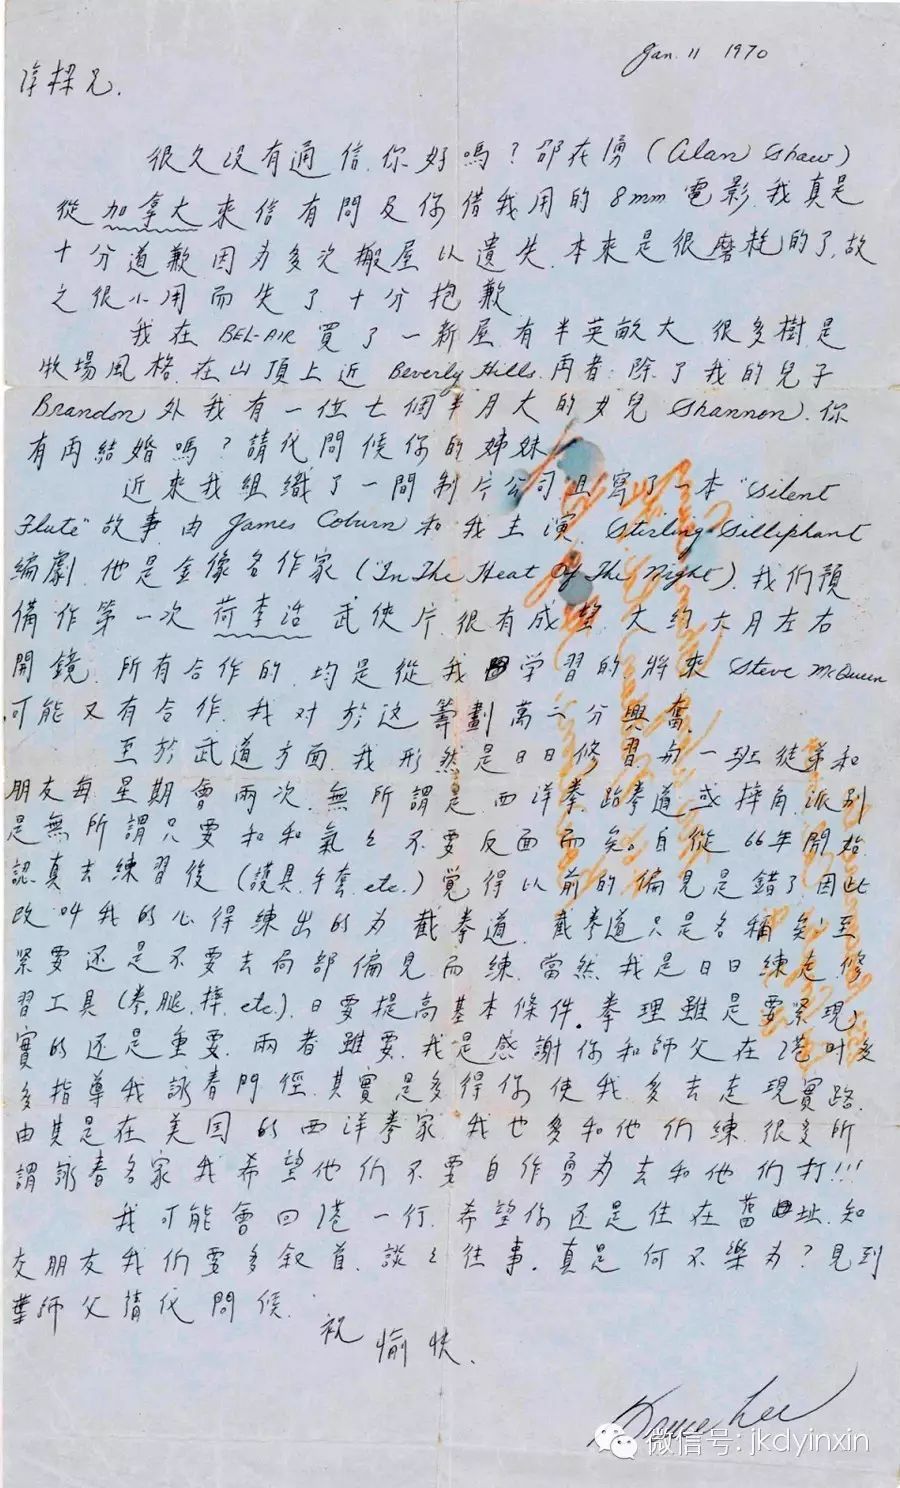 Jan. 11 1970
淳樑兄.
很久没有通信.你好嗎?邵在湧(Alan Shaw)
從加拿大來信有問及你借我用的8mm電影.我真是
十分道歉因为多次搬屋以遺失.本來是很磨耗的了,故
之很小用而失了十分抱歉
我在BEL-AIR買了一新屋有半英畝大.很多樹是
牧場風格.在山頂上近Beverly Hills.再者:除了我的兒子
Brandon外我有一位七個半月大的女兒Shannon.你
有再結婚嗎?請代問候你的姊妹
近來我組織了一間制片公司且寫了一本"Silent
Flute"故事.由James Coburn和我主演.Stirling Silliphant
編劇.他是金像名作家(In The Heat Of The Night).我们預
備作第一次荷李活武俠片.很有成望.大約六月左右
開鏡.所有合作的均是從我学習的.將來Steve McQueen
可能又有合作.我对於这籌劃萬二分興奮.
至於武道方面.我形然是日日修習.每一班徒弟和
朋友每星期會兩次.無所謂是西洋拳.跆拳道或摔角.派別
是無所謂只要和和氣々不要反面而矣。自從66年開始
認真去練習後(護具,手套,etc.)覚得以前的偏見是錯了.因此
改叫我的心得練出的为截拳道.截拳道只是名稱矣.至
緊要还是不要去局部偏見而練.當然我是日日練走.修
習工具(拳,腿,摔,etc.).日要提高基本條件。拳理雖是要緊現
實的还是重要.兩者雖要.我是感謝你和師父在港时多
多指導我詠春門徑.其實是多得你使我多去走現實路.
由其是在美国的西洋拳家.我也多和他们練.很多所
謂詠春名家我希望他们不要自作勇为去和他们打!!!
我可能會回港一行.希望你还是住在舊址.知
交朋友我们要多叙首.談々往事.真是何不樂为?見到
葉師父請代問候.
祝
愉快.
Bruce Lee
微信号: jkdyinxin